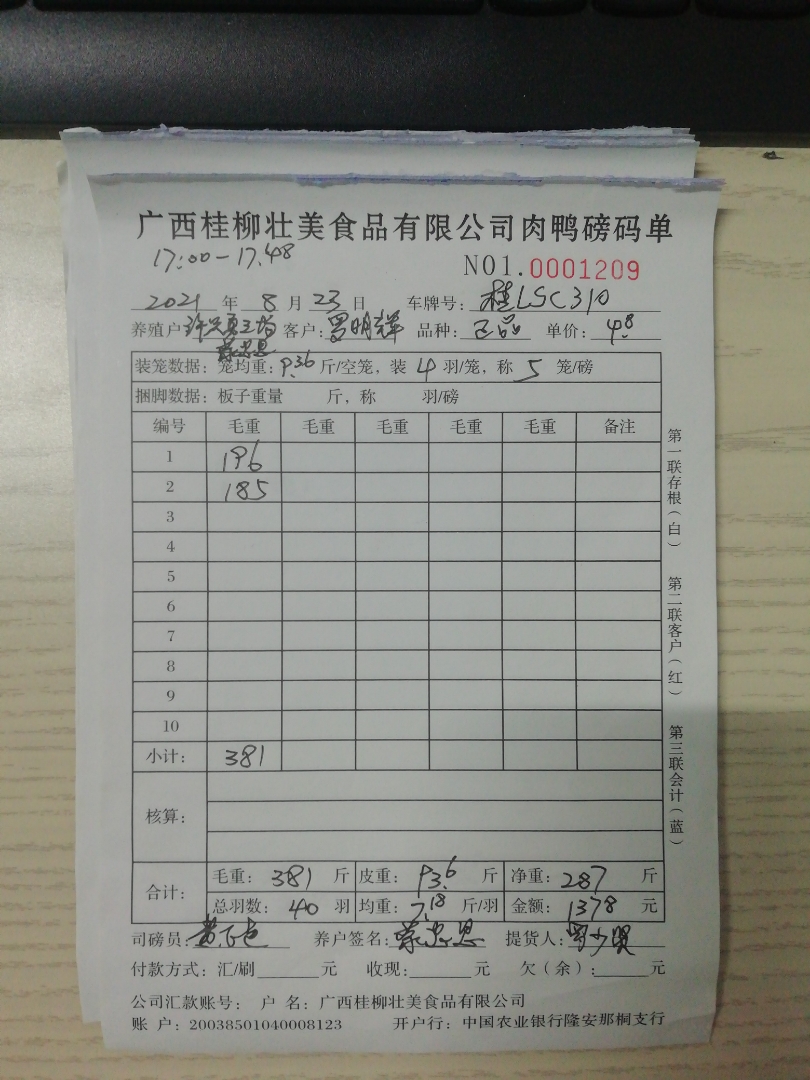 广西桂柳壮美食品有限公司肉鸭磅码单
17:00-17.48
NO1.0001209
2021 年 8 月 23 日 车牌号: 桂LSC310
养殖户 客户: 罗明祥 品种: 正品 单价: 4.8
蒙忠恩
装笼数据: 笼均重: 9.36 斤/空笼, 装 4 羽/笼, 称 5 笼/磅
捆脚数据: 板子重量 斤, 称 羽/磅
编号 毛重 毛重 毛重 毛重 毛重 备注
1 196
2 185
3
4
5
6
7
8
9
10
小计: 381
核算:
合计: 毛重: 381 斤 皮重: 93.6 斤 净重: 287 斤
总羽数: 40 羽 均重: 7.18 斤/羽 金额: 1378 元
司磅员: 养户签名: 蒙忠恩 提货人:
付款方式: 汇/刷 元 收现: 元 欠(余): 元
公司汇款账号: 户 名: 广西桂柳壮美食品有限公司
账 户: 20038501040008123 开户行: 中国农业银行隆安那桐支行
第一联存根(白) 第二联客户(红) 第三联会计(蓝)